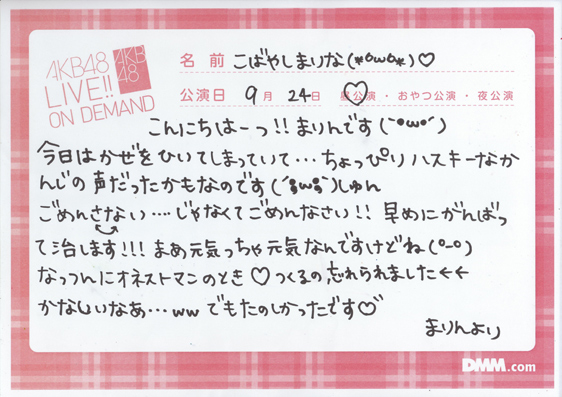 AKB48
LIVE!!
ON DEMAND
AKB
48
名 前 こばやしまりな(*ºωº*)♡
公演日 9月 24日 昼公演・おやつ公演・夜公演
こんにちはーっ!!まりんです(˘ºωº˘)
今日はかぜをひいてしまっていて…ちょっぴりハスキーなか
んじの声だったかもなのです(´;ω;`)しゅん
ごめんさない….じゃなくてごめんなさい!!早めにがんばっ
て治します!!!まぁ元気っちゃ元気なんですけどね(º-º)
なっつんにオネストマンのとき♡つくるの、忘れられました←←
かなしいなあ…wwでもたのしかったです♡
まりんより
DMM.com